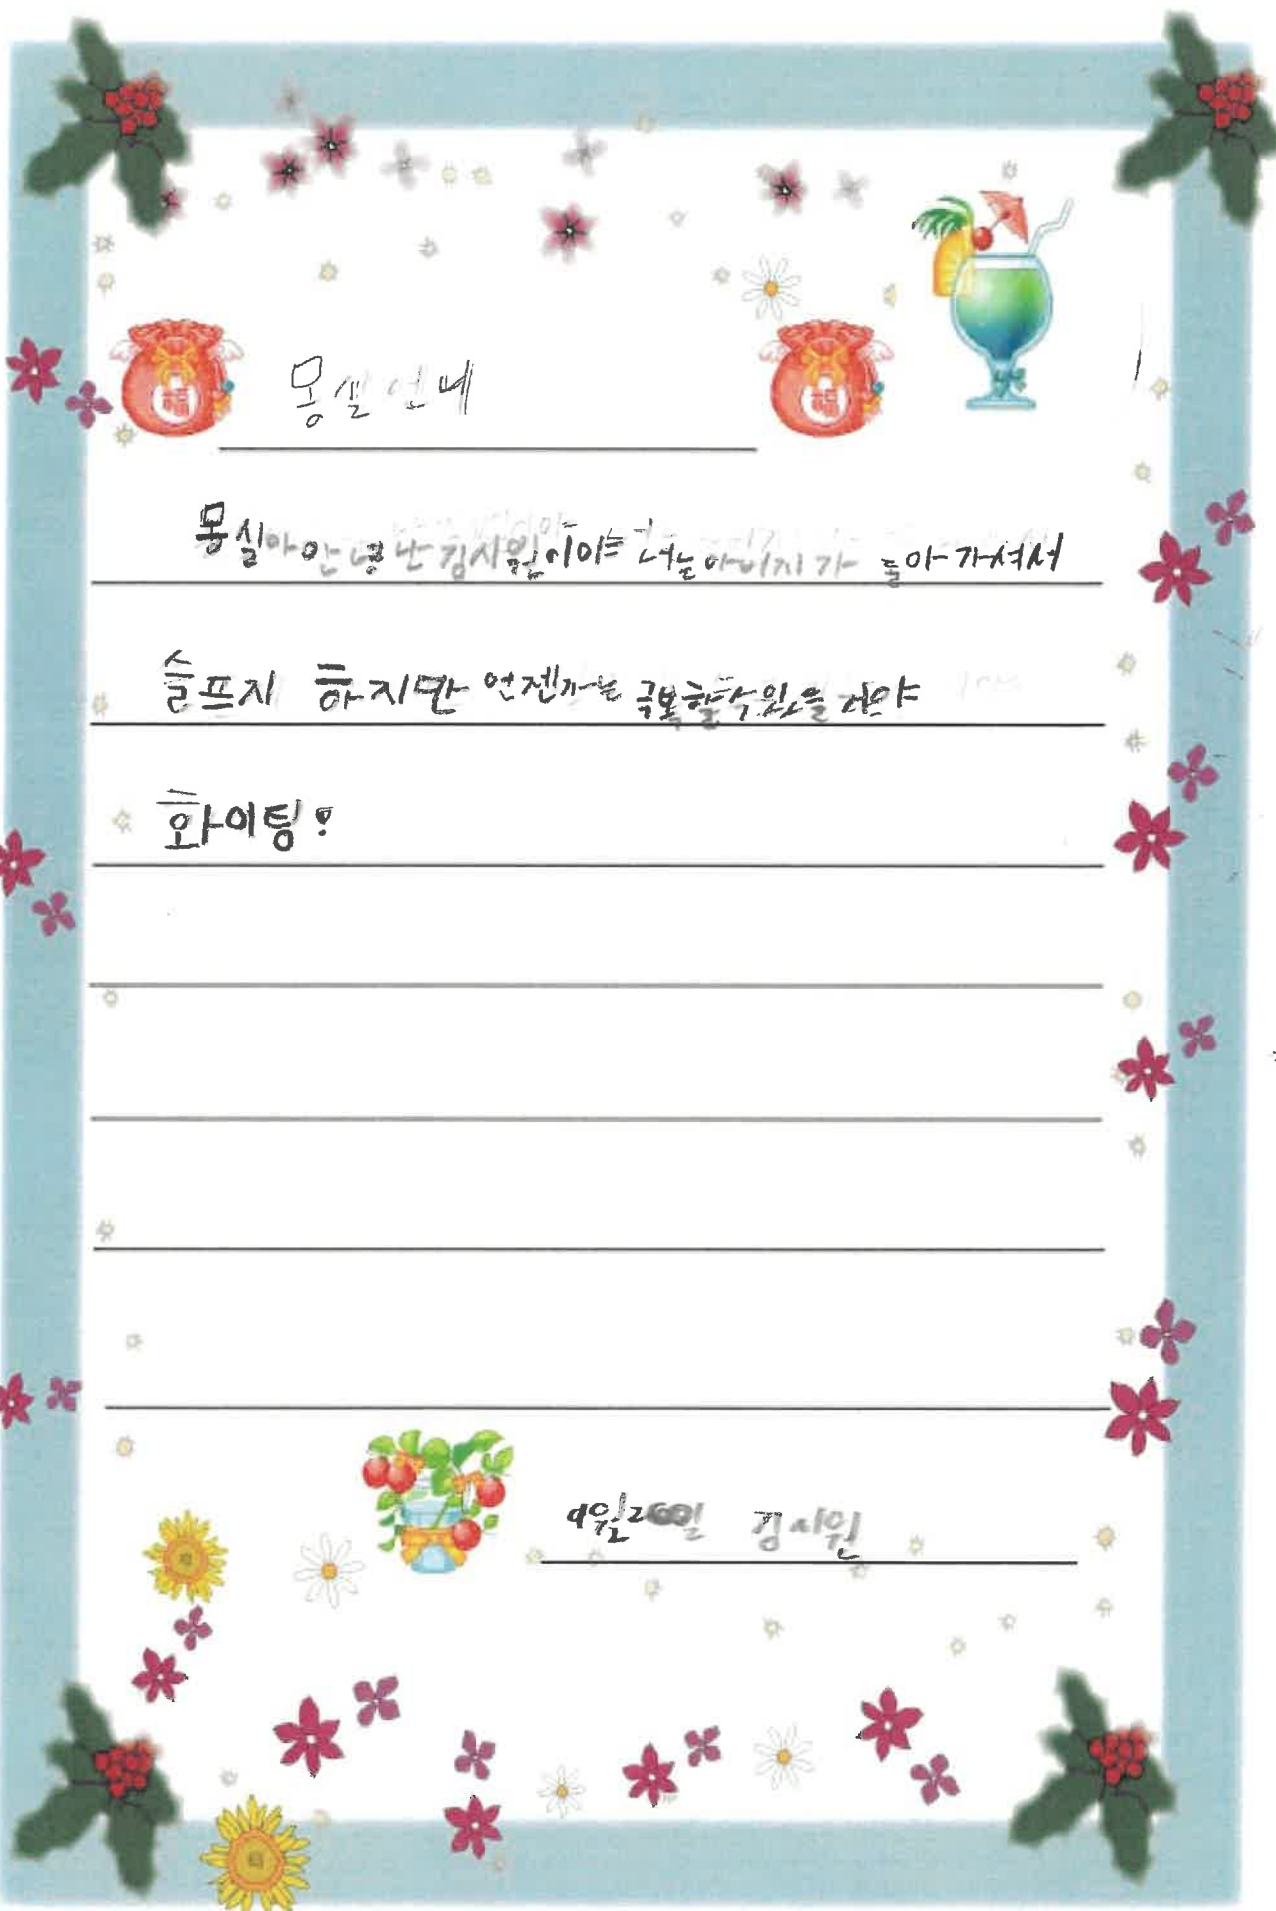 몽실언네
몽실아 안녕 난 김시원이야 너는 아버지가 돌아가셔서
슬프지 하지만 언젠가는 극복할수있을거야
화이팅!
9월26일 김시원